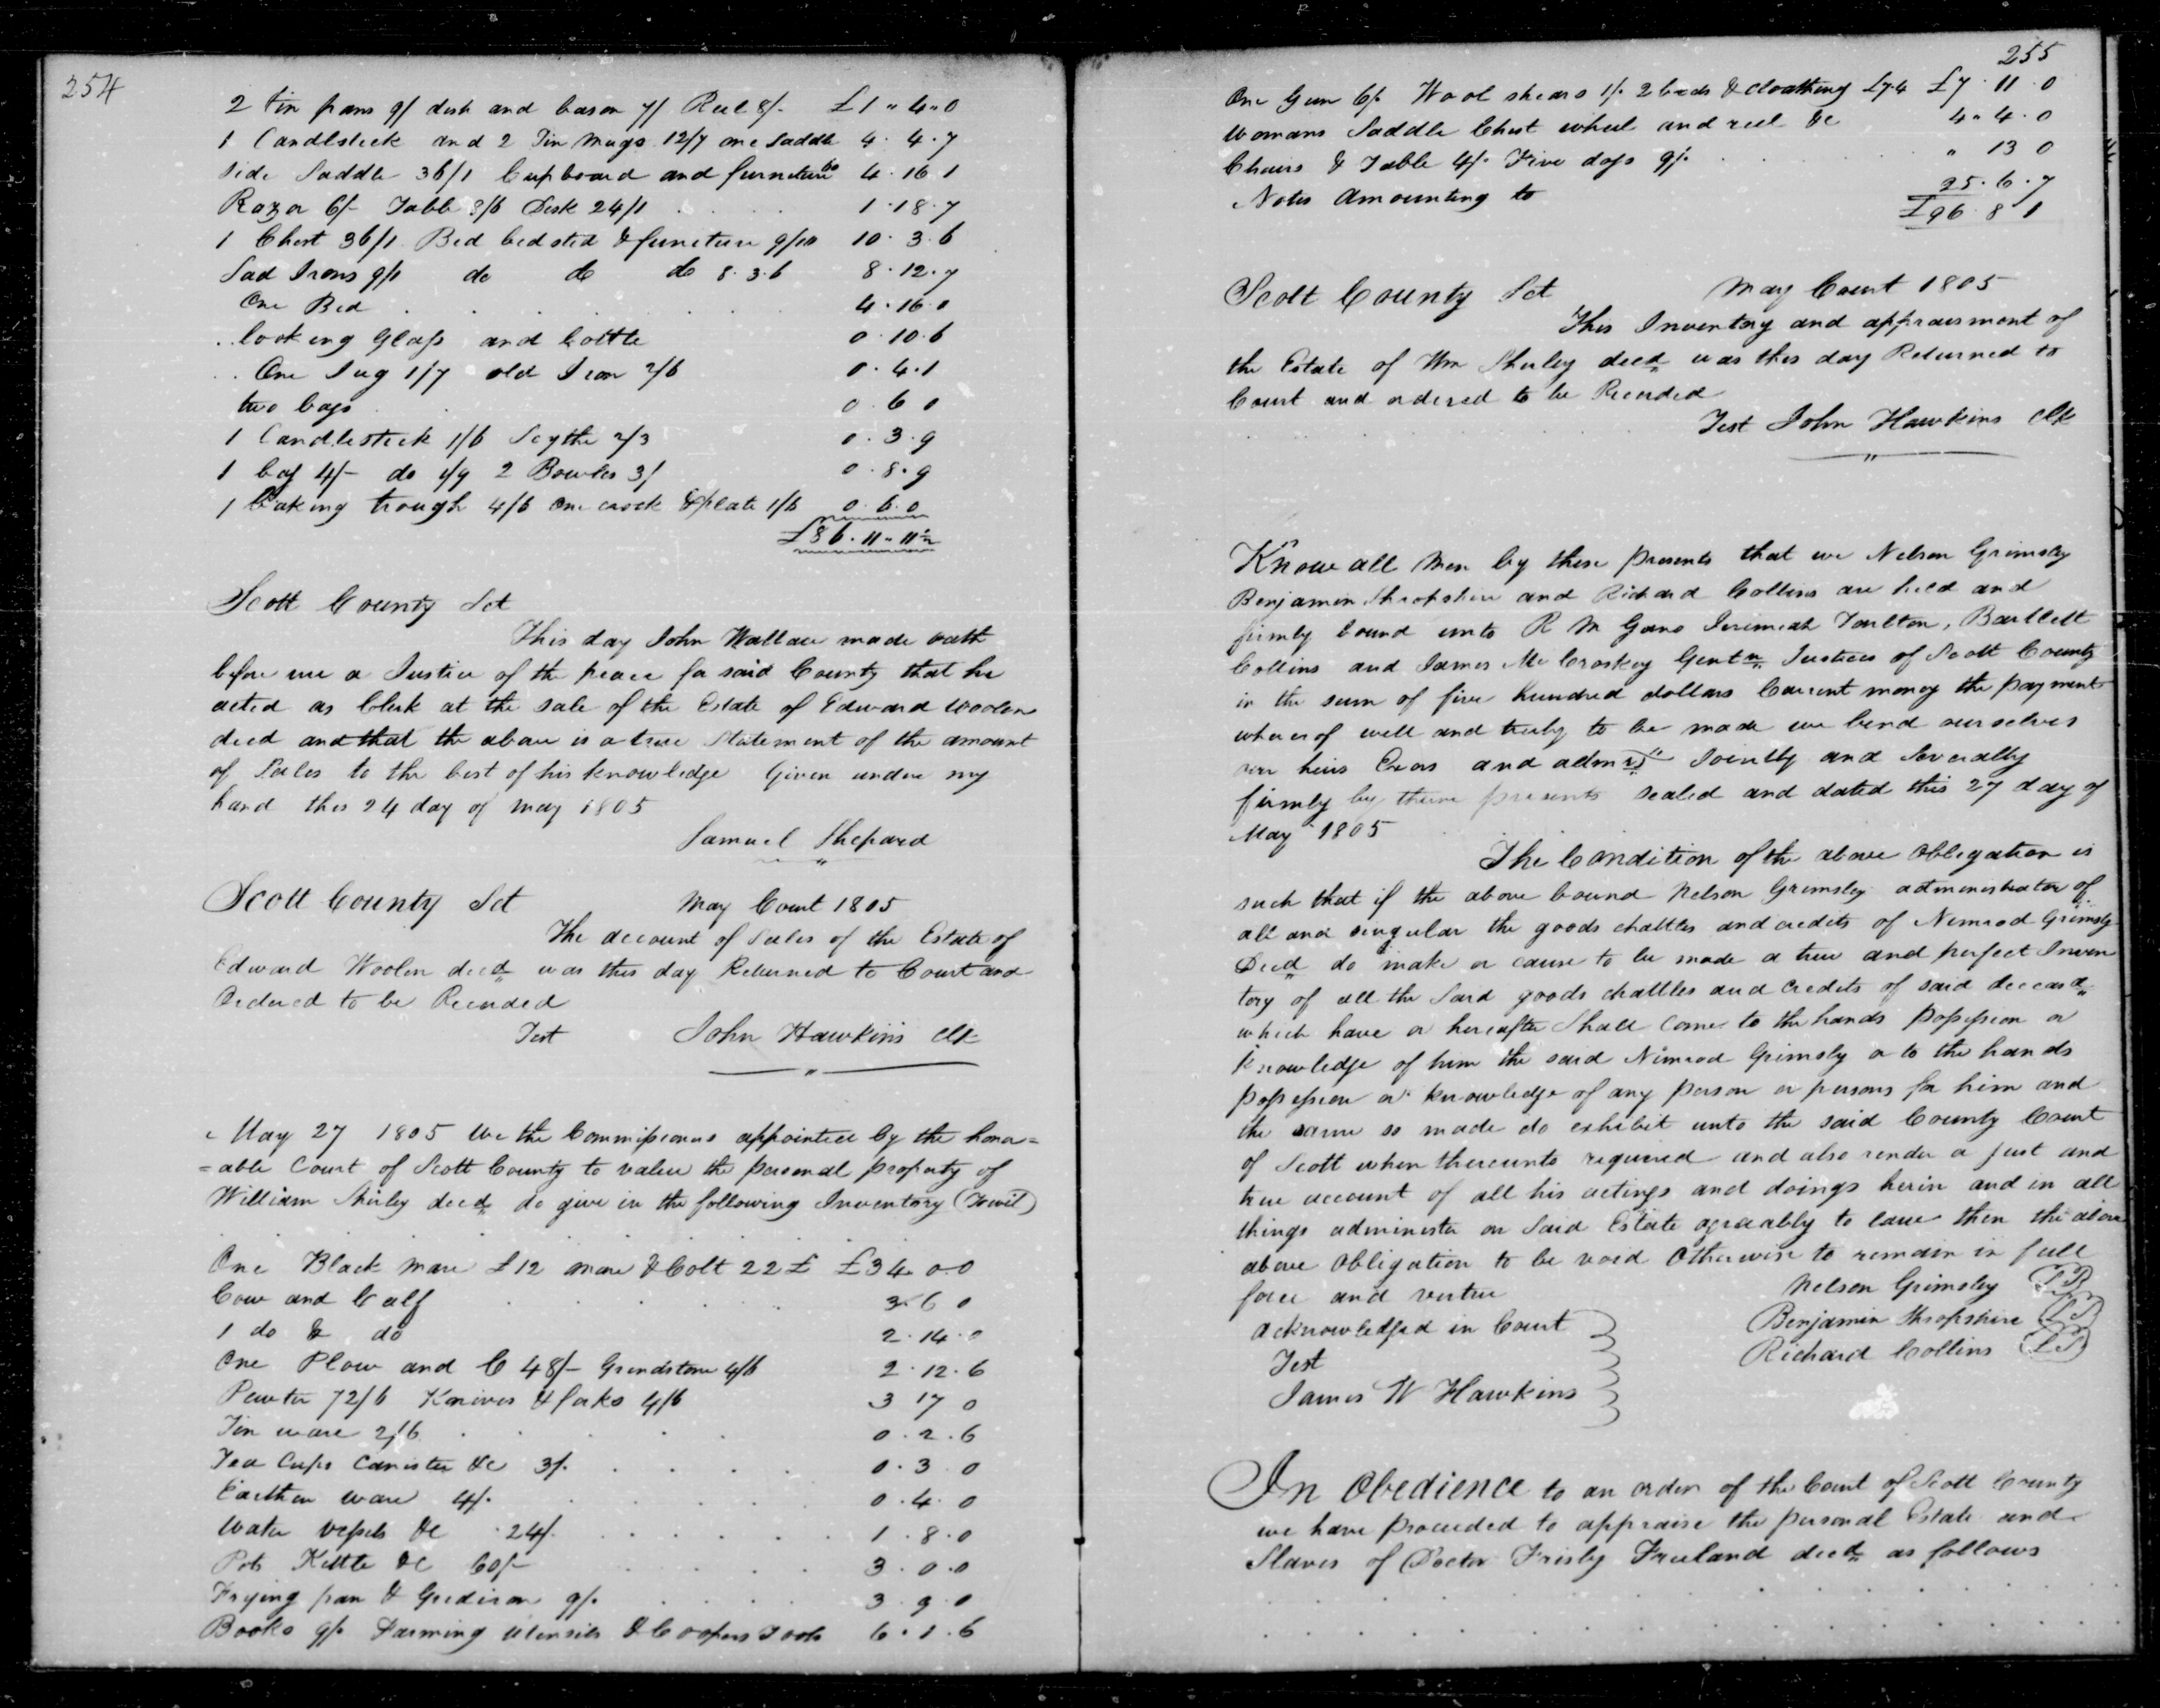 254
2 tin pans 9/ dish and bason 7/ Reel 8/- £1 " 4 " 0
1 Candlestick and 2 Tin Mugs 12/7 one Saddle 4 . 4 . 7
Side Saddle 36/1 Cupboard and furniture 60 4 . 16 1
Razor 6/- Table 8/6 Desk 24/1 1 . 18 . 7
1 Chest 36/1 Bed bedsted & furneture 10 . 3 . 6
Sad Irons 9/1 do do do 8 . 3 . 6 8 . 12 . 7
One Bed 4 . 16 . 0
looking Glass and bottle 0 . 10 . 6
One Jug 1/7 old Iron 2/6 0 . 4 . 1
two bags 0 . 6 0
1 Candlestick 1/6 Scythe 2/3 0 . 3 . 9
1 bag 4/- do 1/9 2 Bowles 3/ 0 . 8 . 9
1 baking trough 4/6 one crock & plate 1/6 0 . 6 . 0
£86 . 11 " 11½
Scott County Sct
This day John Wallace made oath
before me a Justice of the peace for said County that he
acted as Clerk at the sale of the Estate of Edward Woolen
decd and that the above is a true Statement of the amount
of Sales to the best of his knowledge Given under my
hand this 24 day of may 1805
Samuel Shepard
Scott County Sct May Court 1805
The account of Sales of the Estate of
Edward Woolen decd was this day Returned to Court and
Ordered to be Recorded
Test John Hawkins Clk
May 27 1805 We the Commissioners appointed by the hono=
=able Court of Scott County to value the personal property of
William Shirley decd do give in the following Inventory (Towit)
One Black Mare £12 mare & Colt 22£ £34 . 0 . 0
Cow and Calf 3 . 6 0
1 do & do 2 . 14 . 0
One Plow and C 48/- Grindstone 4/6 2 . 12 . 6
Pewter 72/6 Knives & forks 4/6 3 17 0
Tin ware 2/6 0 . 2 . 6
Tea Cups Canister &c 3/. 0 . 3 0
Earthen ware 4/. 0 . 4 . 0
Water vessels &c 24/. 1 . 8 . 0
Pots Kettle &c 60/- 3 . 0 . 0
Frying pan & Gridiron 9/. 3 . 9 . 0
Books 9/. Farming utensils & Coopers Tools 6 . 1 . 6
255
One Gun 6/. Wool shears 1/. 2 beds & cloathing £7.4 £7 . 11 . 0
Womans Saddle Chest wheel and reel &c 4 . 4 . 0
Chairs & Table 4/. Five dogs 9/. " 13 0
Notes Amounting to 25 . 6 . 7
£96 . 8 1
Scott County Sct May Court 1805
This Inventory and appraisment of
the Estate of Wm Shirley decd was this day Returned to
Court and ordered to be Recorded
Test John Hawkins Clk
Know all Men by these presents that we Nelson Grimsley
Benjamin Shropshire and Richard Collins are held and
firmly bound unto R M Gano Jeremiah Tarlton, Bartlett
Collins and James McCroskey Gentn Justices of Scott County
in the sum of five hundred dollars Current money the payment
whereof well and truly to be made we bind ourselves
our heirs Exors and admrs Jointly and Severally
firmly by these presents sealed and dated this 27 day of
May 1805
The Condition of the above Obligation is
such that if the above bound Nelson Grimsley administrator of
all and singular the goods chattles and credits of Nimrod Grimsly
Decd do make or cause to be made a true and perfect Inven
tory of all the Said goods chattles and credits of said deceasd
which have or hereafter Shall Come to the hands possession or
Knowledge of him the said Nimrod Grimsly or to the hands
possession or knowledge of any person or persons for him and
the same so made do exhibit unto the said County Court
of Scott when thereunto required and also render a just and
true account of all his actings and doings herin and in all
things administer on Said Estate agreeably to law then the above
above Obligation to be void Otherwise to remain in full
force and vertue Nelson Grimsley
acknowledged in Court Benjamin Shropshire
Test Richard Collins
James W Hawkins
In Obedience to an order of the Court of Scott County
we have proceeded to appraise the personal Estate and
Slaves of Doctor Frisby Freeland decd as follows